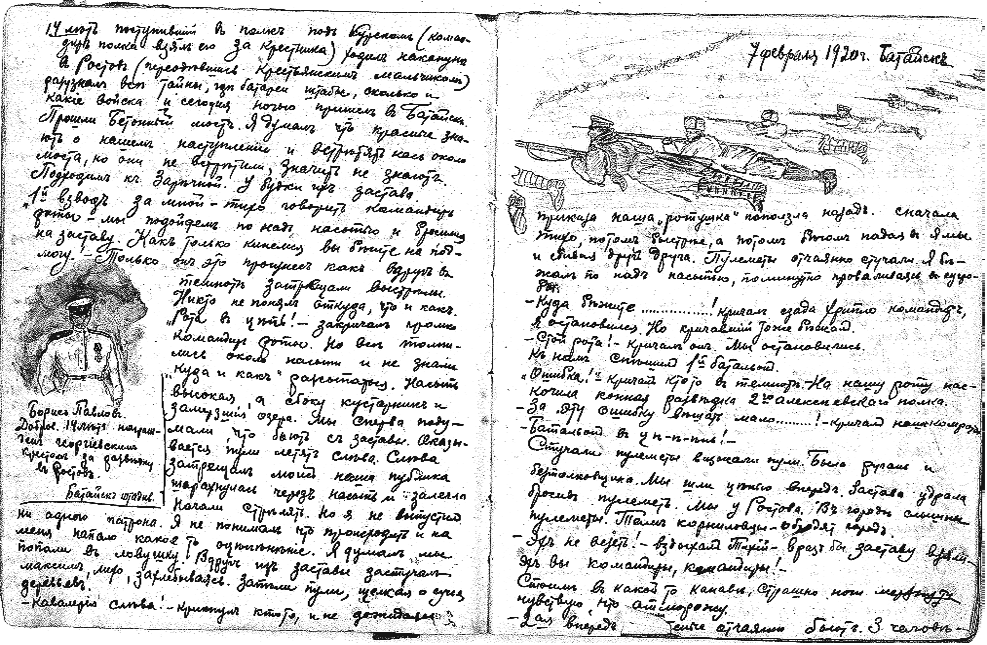 14 лѣтъ поступившій въ полкъ подъ Курскомъ (коман-
диръ полка взялъ его за крестника) ходилъ наканунѣ
въ Ростовъ (переодѣвшись крестьянскимъ мальчикомъ)
разузналъ всѣ тайны, гдѣ батареи штабы, сколько и
какіе войска и сегодня ночью пришелъ въ Батайскъ.
Прошли бетонный мостъ. Я думалъ что красные зна-
ютъ о нашемъ наступленіи и встрѣтятъ насъ около
моста, но они не встрѣтили, значитъ не знаютъ.
Подходимъ къ Зарѣчной. У будки ихъ застава.
"1й взводъ за мной – тихо говоритъ командиръ
роты – мы подойдемъ по надъ насыпью и бросимся
на заставу. Какъ только кинемся вы бѣгите на под-
могу." – Только онъ это произнесъ какъ вдругъ въ
темнотѣ затрещали выстрѣлы.
Никто не понялъ откуда, что и какъ.
"Рота въ цѣпь! – закричалъ громко
командиръ роты. Но всѣ толпи-
лись около насыпи и не знали
"куда и какъ" разсыпаться. Насыпь
высокая, а сбоку кустарникъ и
замерзшій озера. Мы сперва поду-
мали что бьютъ съ заставы. Оказы-
вается пули летятъ слѣва. Слѣва
затрещалъ наша публика
шарахнулась черезъ насыпь и залегла
Начали стрѣлять. Но я не выпустилъ
ни одного патрона. Я не понималъ что происходитъ и на
меня напало какое то оцѣпенѣніе. Я думалъ мы
попали въ ловушку! Вдругъ изъ заставы застучалъ
максимъ, захлебываясь. Запѣли пули, щелкая о сучья
деревьевъ.
– Кавалерія слѣва! – крикнулъ кто то, и не дожидаясь
Борисъ Павловъ.
Добров. 14 лѣтъ награж-
денъ георгіевскимъ
крестомъ за развѣдку
въ Ростовѣ.
Батайскъ
7 февраля 1920 г. Батайскъ
приказа наша "ротушка" поползла назадъ. Сначала
тихо, потомъ быстрѣе, а потомъ бѣгомъ падая въ ямы
и сбивая другъ друга. Пулеметы отчаянно стучали. Я бѣ-
жалъ по надъ насыпью, поминутно проваливаясь въ сугро-
бы.
– Куда бѣжите ...............! кричалъ сзади хрипло командиръ,
я остановился. Но кричавшій тоже бѣжалъ.
– Стой рота! – кричалъ онъ. Мы остановились.
Къ намъ спѣшилъ 1й батальонъ.
"Ошибка!" – кричалъ кто то въ темнотѣ. На нашу роту нас-
кочила конная развѣдка 2го алексѣевскаго полка.
– За эту ошибку вѣшать мало..........! – кричалъ
– Батальонъ въ ц п-п-пь! –
Стучали пулеметы визжали пули. Была ругань и
безтолковщина. Мы шли цѣпью впередъ. Застава удрала
бросивъ пулеметъ. Мы у Ростова. Въ городѣ слышны
пулеметы. Тамъ корниловцы обходятъ городъ.
– Эхъ не везетъ! – вздыхалъ – вразъ бы заставу взяли –
эхъ вы командиры, командиры! –
Стоимъ въ какой то канавѣ, страшно ноги мерзнутъ
чувствую что отморожу.
– впередъ отчаянно бьютъ. 3 человѣ-